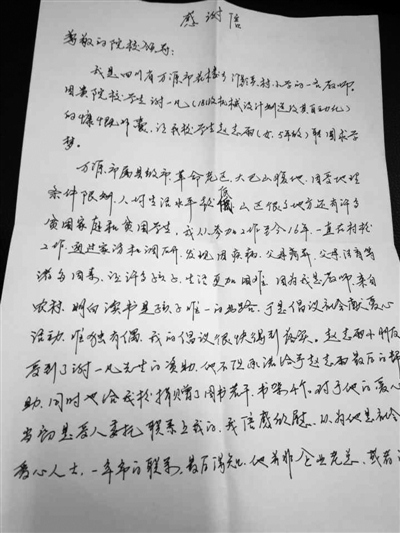 感谢信
尊敬的院校领导：
我是四川省万源市花楼乡 村小学的一名教师。
因贵院校学生谢一凡（ 级机械设计制造及其自动化）
的慷慨 ，让我校学生赵志 （女，5年级）取 求学
梦。
万源市属县级市，革命老区，大巴山腹地，因受地理
条件限制，人均生活水平较低，山区很多地方还有许多
贫困家庭和贫困学生，我从参加工作至今16年，一直在村校
工作，通过家访和调研，发现因疾病、父母离异、父母没有等
诸多因素，让许多孩子，生活更加困难，因为我是教师，来自
农村，明白读书是孩子唯一的出路，于是倡议社会献爱心
活动，唯独有偶，我的倡议很快得到 ，赵志 小朋友
受到了谢一凡先生的资助，他不但承诺给予赵志 最后的帮
助，同时他给我校捐赠了图书若干，书架4个，对于他的爱心
当初是否人委托联系上我的，我倍感欣慰，以为他是社会
爱心人士，一年 的联系，最后得知，他并非企业老总，或者